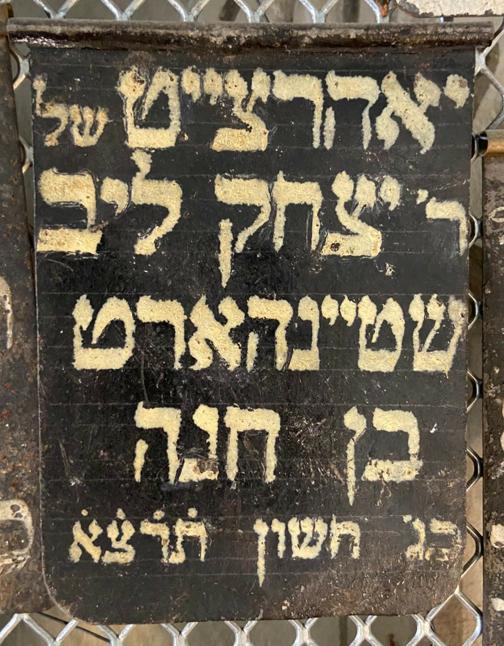 יאהרצייט של
ר' יצחק ליב
שטיינהארט
בן חנה
כג חשון תרצא